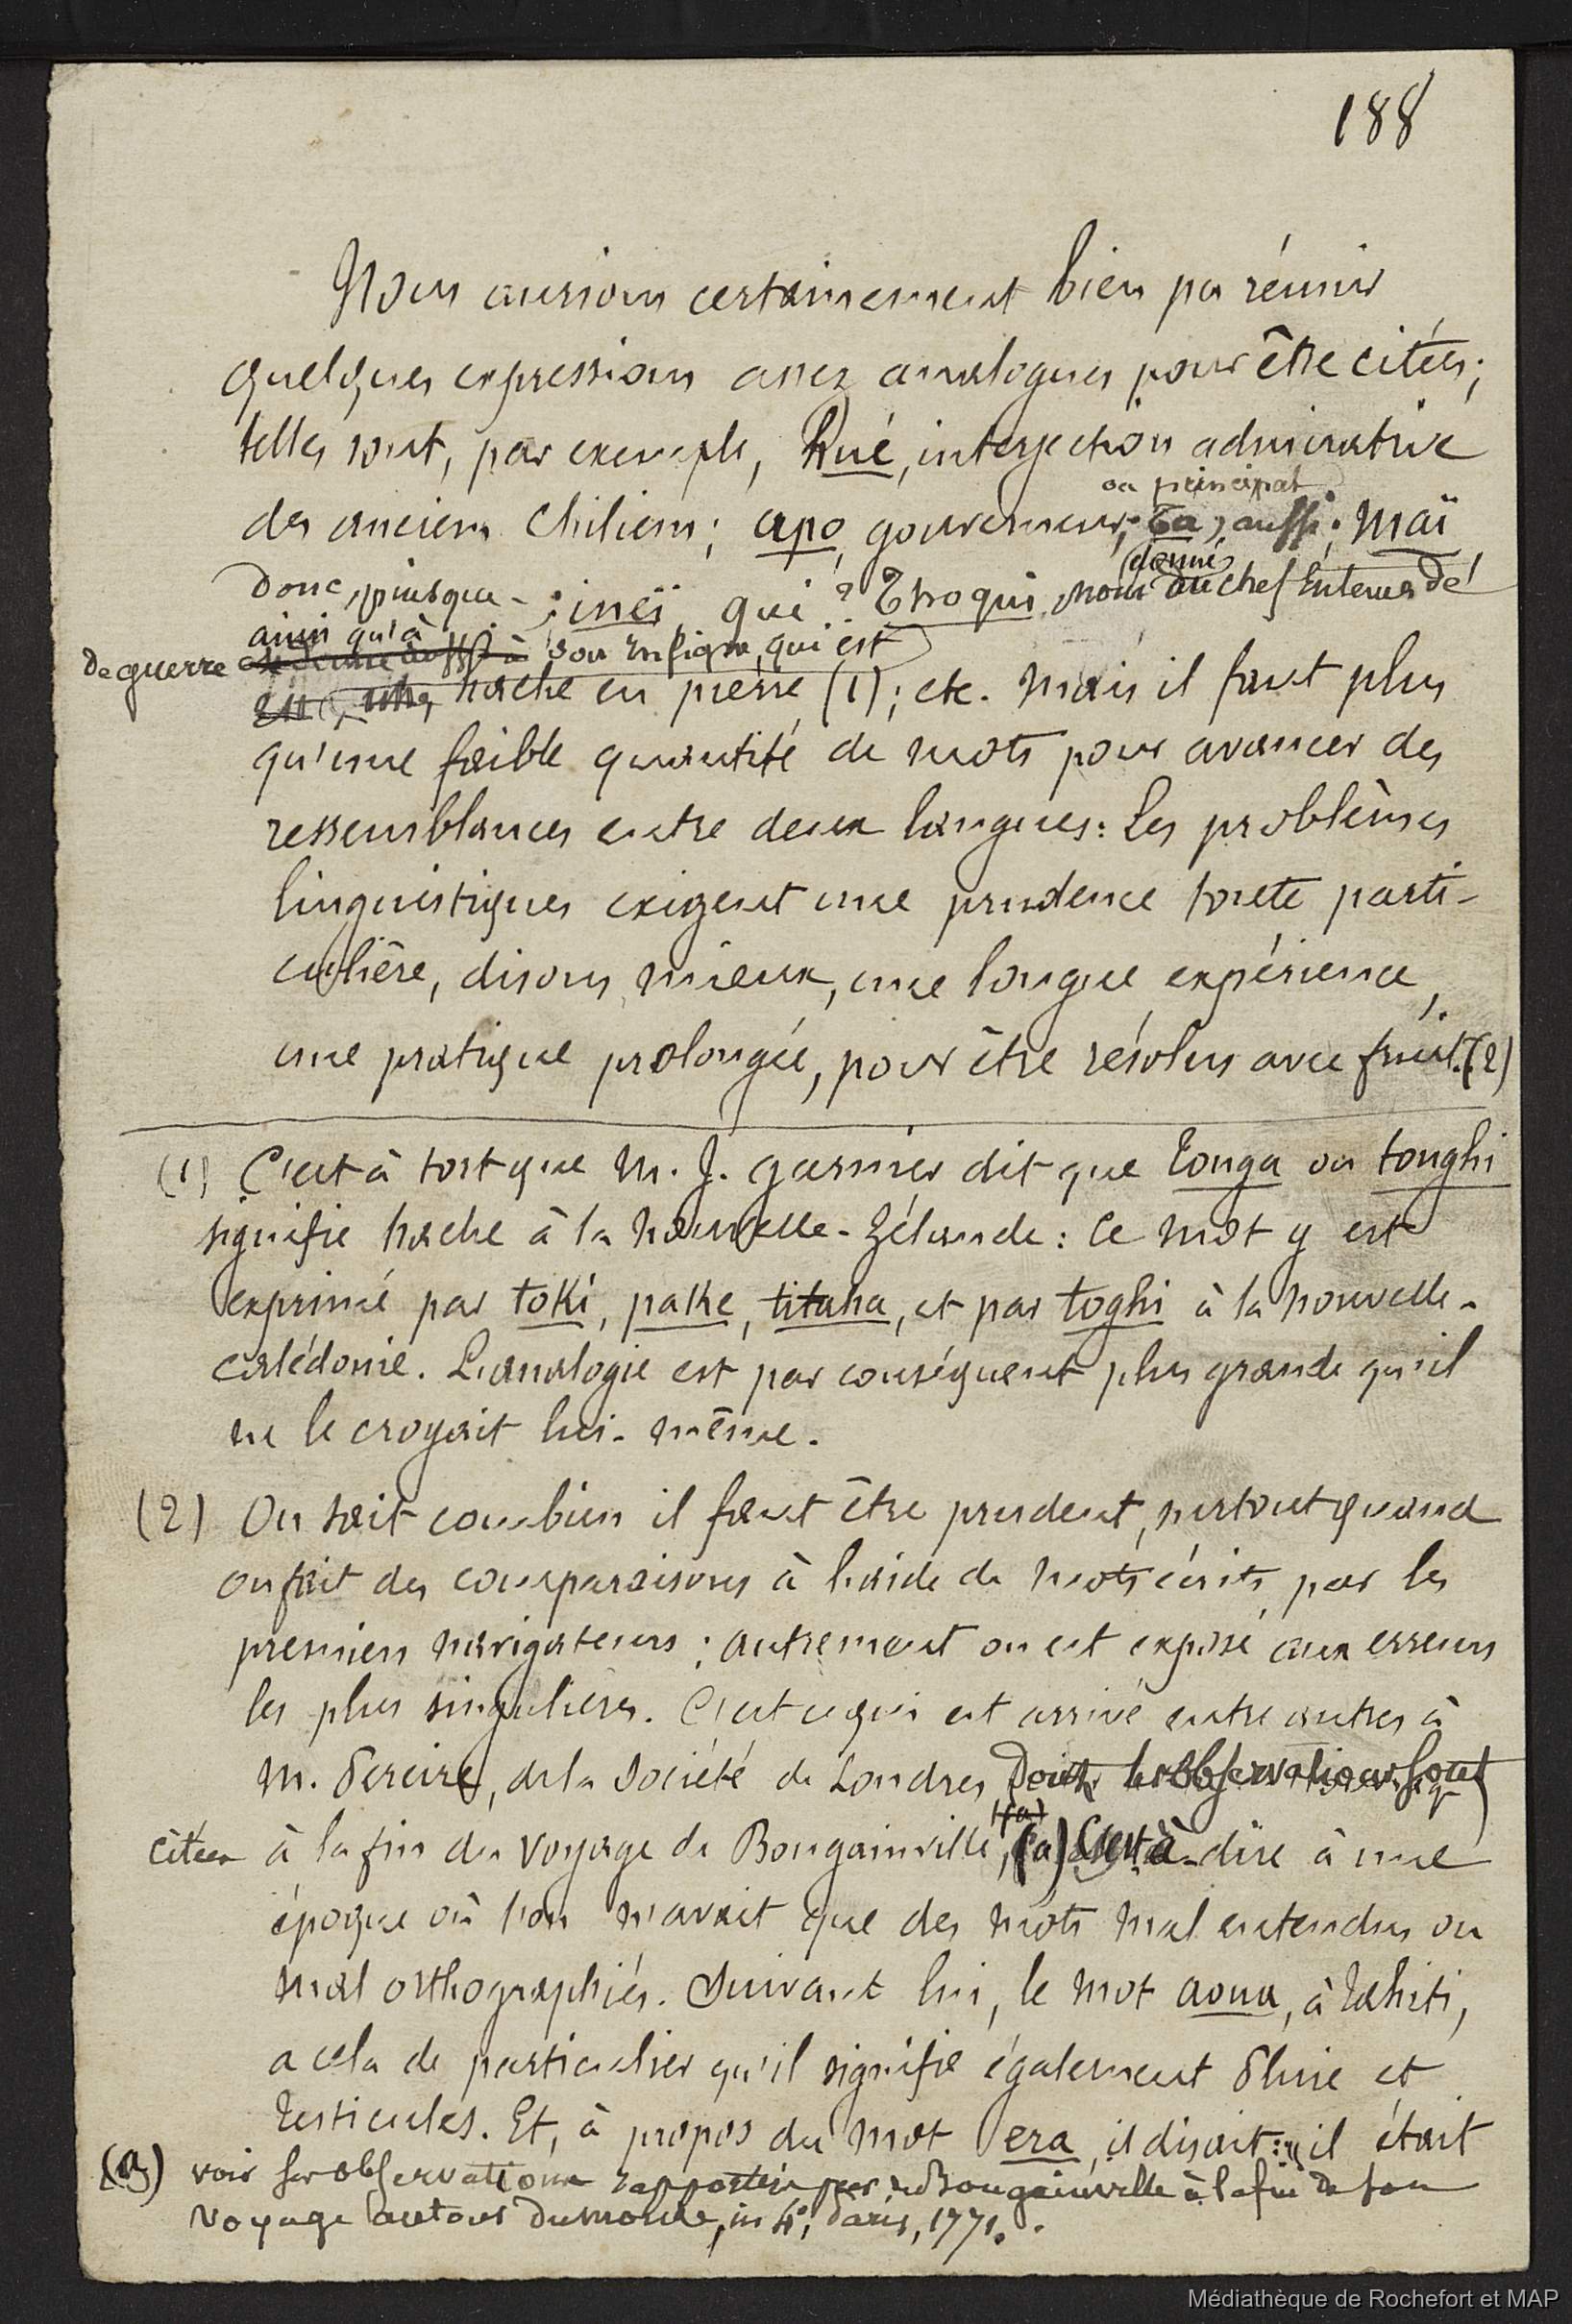 188
Nous aurions certainement bien pu réunir
quelques expressions assez analogues pour être citées;
telles sont, par exemple, hué, interjection admirative
ou principal
des anciens Chiliens; apo, gouverneur; ta, aussi; maï
donc, puisque; ineï qui? Thoqui, nom donné au chef Entemu de
ainsi qu'à son insigne, qui est
de guerre
hache en pierre (1); etc. Mais il faut plus
qu'une faible quantité de mots pour avancer des
ressemblances entre deux langues: Les problèmes
linguistiques exigent une prudence toute parti-
culière, disons mieux, une longue expérience,
une pratique prolongée, pour être résolus avec fruit. (2)
(1) C'est à tort que M. J. garnier dit que tonga ou tonghi
signifie hache à la nouvelle-Zélande: Ce mot y est
exprimé par toki, pake, titaha, et par toghi à la nouvelle-
calédonie. L'analogie est par conséquent plus grande qu'il
ne le croyait lui-même.
(2) On sait combien il faut être prudent, surtout quand
on fait des comparaisons à l'aide de mots écrits par les
premiers navigateurs; autrement on est exposé aux erreurs
les plus singulières. C'est ce qui est arrivé entre autres à
M. Pereire, de la Société de Londres, dont les observations sont
citées à la fin du voyage de Bougainville, (a) C'est-à-dire à une
époque où l'on n'avait que des mots mal entendus ou
mal orthographiés. Suivant lui, le mot aoua, à Tahiti,
a cela de particulier qu'il signifie également Pluie et
Testicules. Et, à propos du mot era, il disait: "il était
(a) voir ses observations rapportées par de Bougainville à la fin de son
voyage autour du monde, in 4°, Paris, 1771.
Médiathèque de Rochefort et MAP